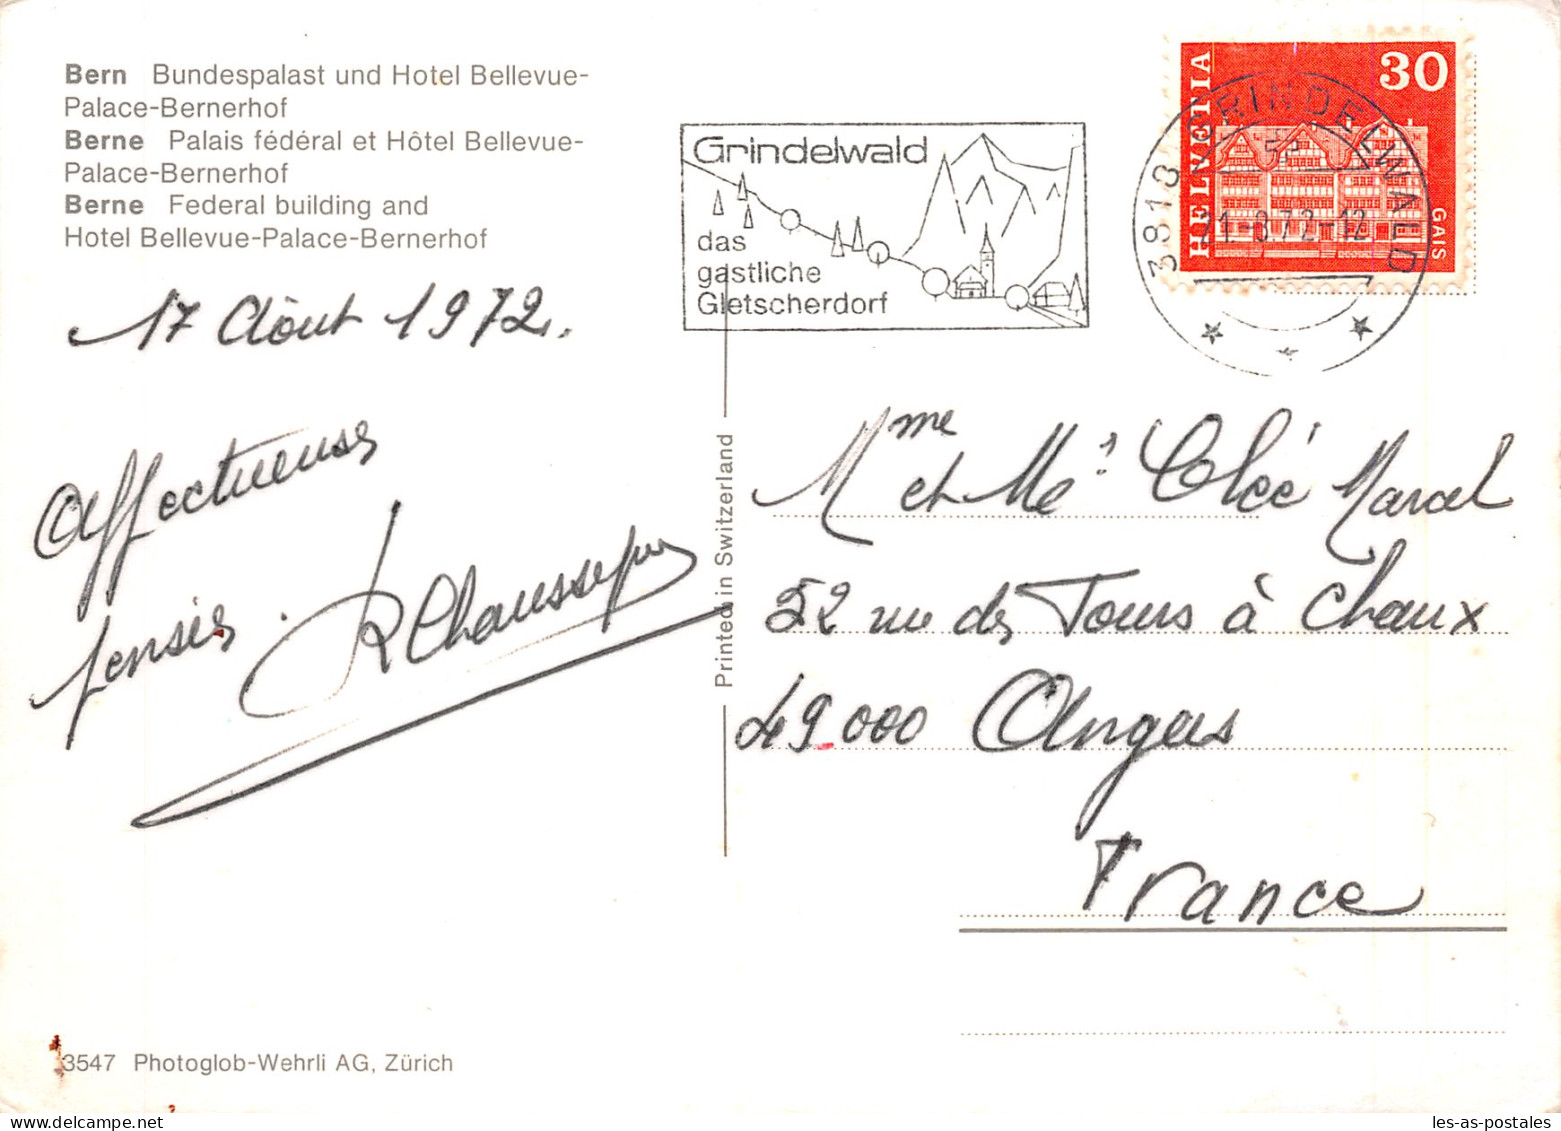 Bern Bundespalast und Hotel Bellevue-
Palace-Bernerhof
Berne Palais fédéral et Hôtel Bellevue-
Palace-Bernerhof
Berne Federal building and
Hotel Bellevue-Palace-Bernerhof
17 Août 1972.
Affectueuses
pensées.
Grindelwald
das
gastliche
Gletscherdorf
HELVETIA
30
GAIS
3818 GRINDELWALD
21-8.72-12
Printed in Switzerland
Mme et Me Cléé Marcel
22 rue des Tours à Chaux
49.000 Angers
France
3547 Photoglob-Wehrli AG, Zürich
les-as-postales